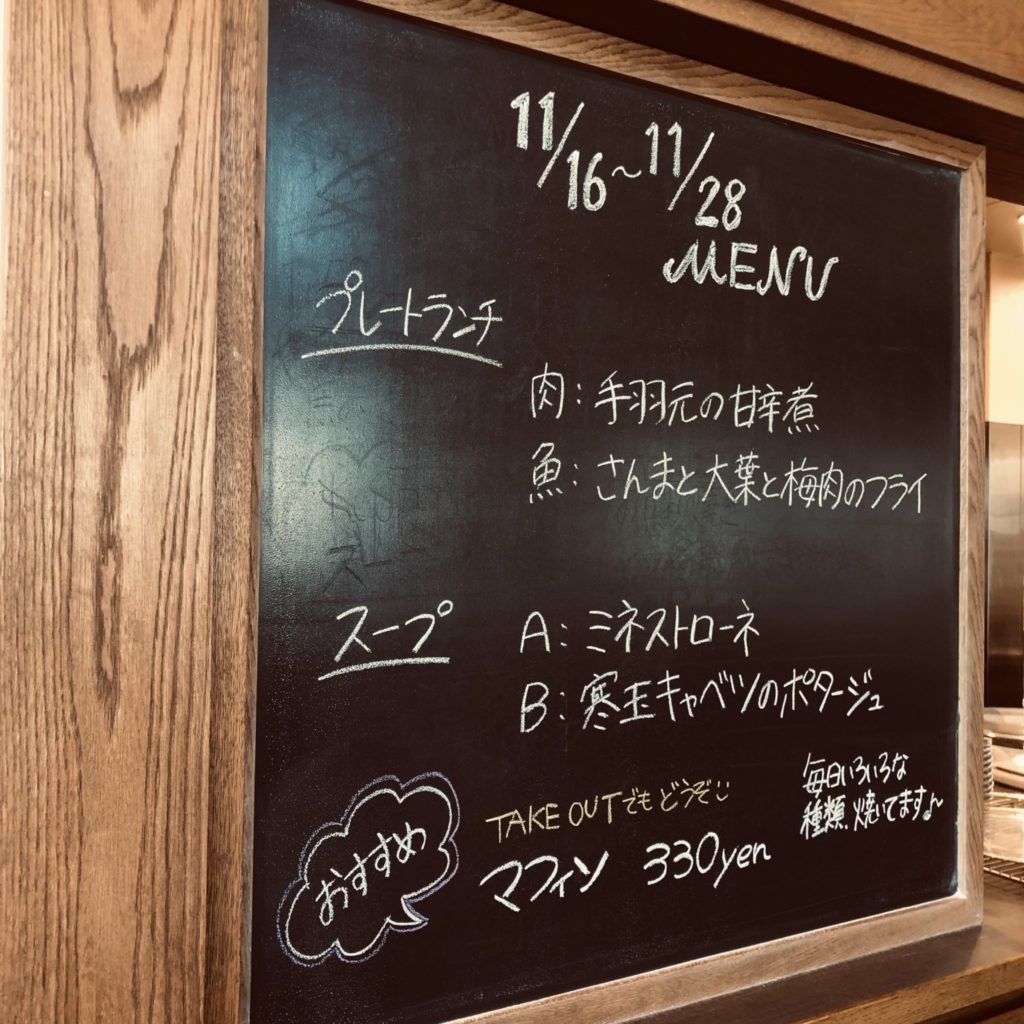 11/16～11/28
MENU
プレートランチ
肉：手羽元の甘辛煮
魚：さんまと大葉と梅肉のフライ
スープ
A：ミネストローネ
B：寒玉キャベツのポタージュ
おすすめ
TAKE OUTでもどうぞ
マフィン 330yen
毎日いろいろな
種類、焼いてます♪